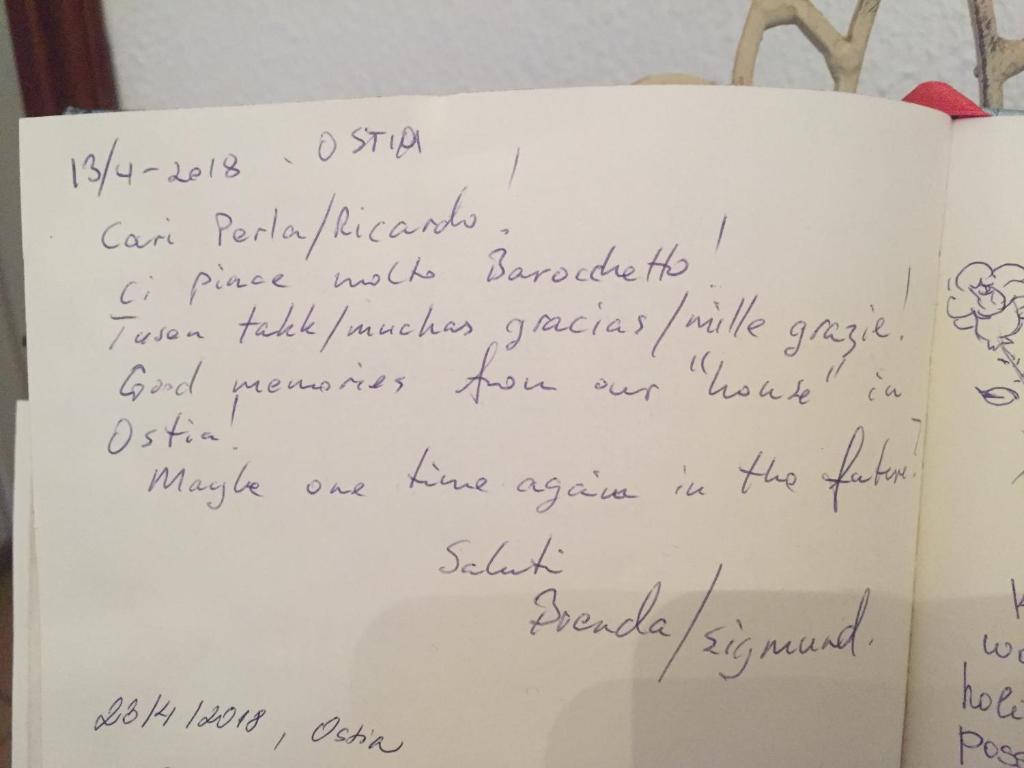 13/4-2018. OSTIA
Cari Perla/Ricardo!
Ci piace molto Barocchetto!
Tusen takk/muchas gracias/mille grazie!
Good memories from our "house" in
Ostia!
Maybe one time again in the future!
Saluti
Brenda/Sigmund.
23/4/2018, Ostia